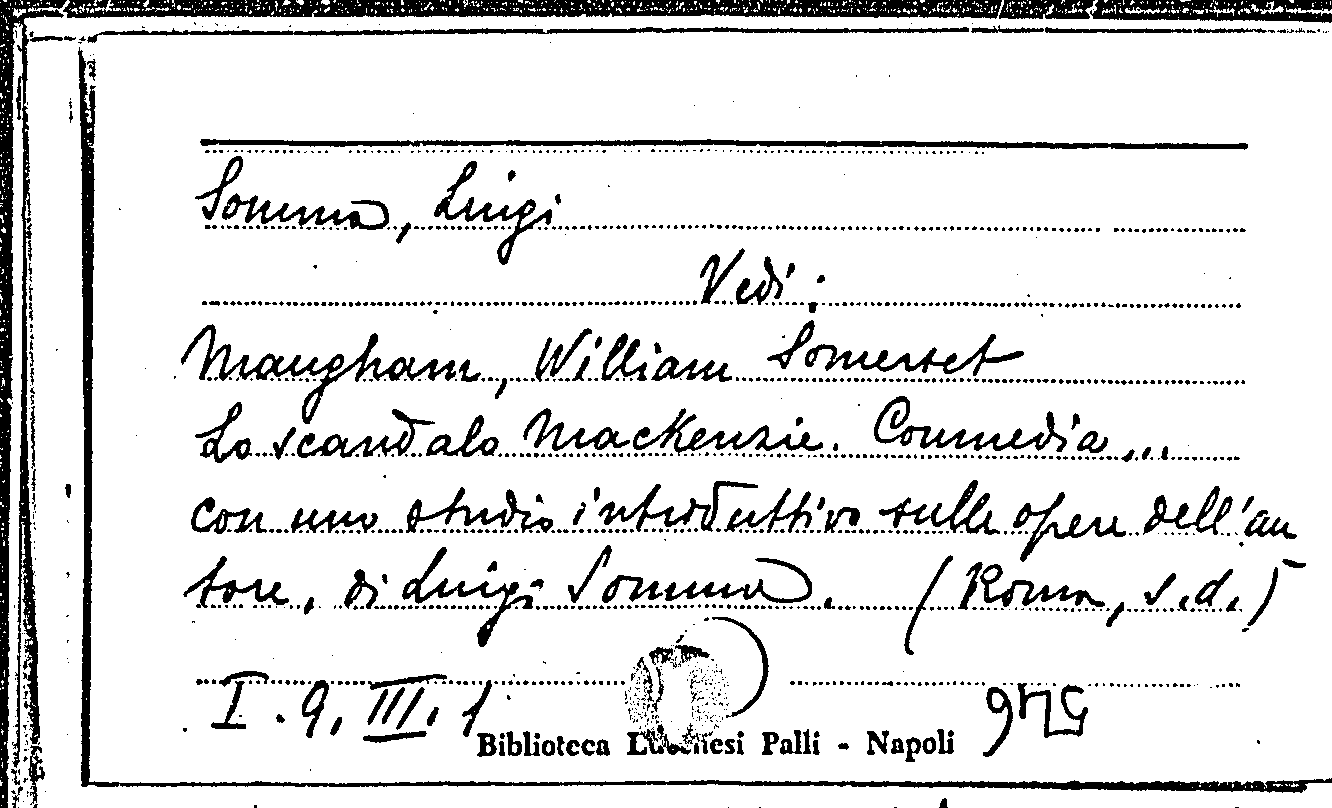 Somma, Luigi
Vedi:
Maugham, William Somerset
Lo scandalo Mackenzie. Commedia...
con uno studio introduttivo sulle opere dell'au
tore, di Luigi Somma. (Roma, s.d.)
I.9.III.1
Biblioteca Lucchesi Palli - Napoli